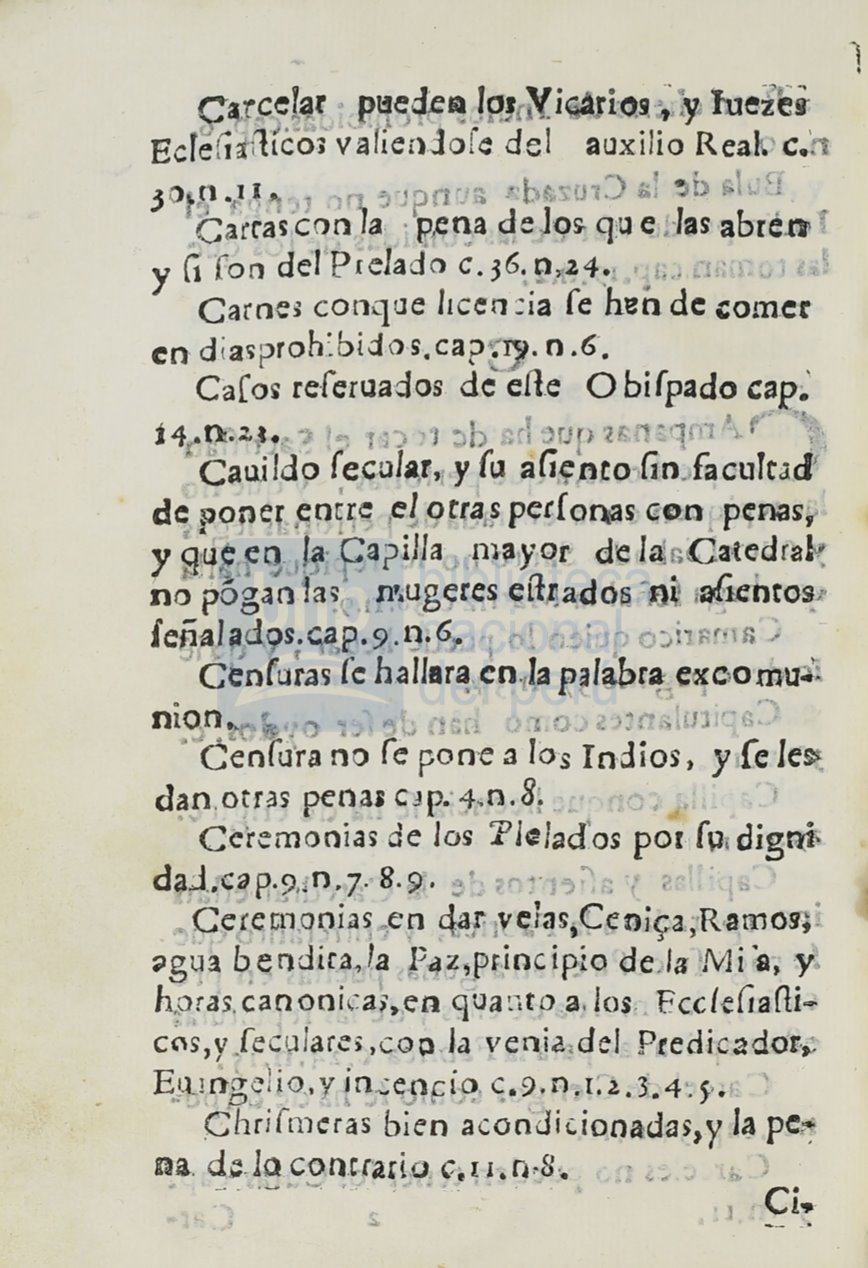 Carcelar pueden los Vicarios, y Iuezes
Eclesiasticos valiendose del auxilio Real. c.
30. n. 11.
Cartas con la pena de los que las abren
y si son del Prelado c. 36. n. 24.
Carnes conque licencia se hen de comer
en dias prohibidos. cap. 19. n. 6.
Casos reseruados de este Obispado cap.
14. n. 21.
Cauildo secular, y su asiento sin facultad
de poner entre el otras personas con penas,
y que en la Capilla mayor de la Catedral
no pógan las mugeres estrados ni asientos
señalados. cap. 9. n. 6.
Censuras se hallara en la palabra excomu-
nion.
Censura no se pone a los Indios, y se les
dan otras penas cap. 4. n. 8.
Ceremonias de los Prelados por su digni-
dad. cap. 9. n. 7. 8. 9.
Ceremonias en dar velas, Ceniça, Ramos,
agua bendita, la Paz, principio de la Misa, y
horas canonicas, en quanto a los Ecclesiasti-
cos, y seculares, con la venia del Predicador,
Euangelio, y incencio c. 9. n. 1. 2. 3. 4. 5.
Chrismeras bien acondicionadas, y la pe-
na de lo contrario c. 11. n. 8.
Ci-